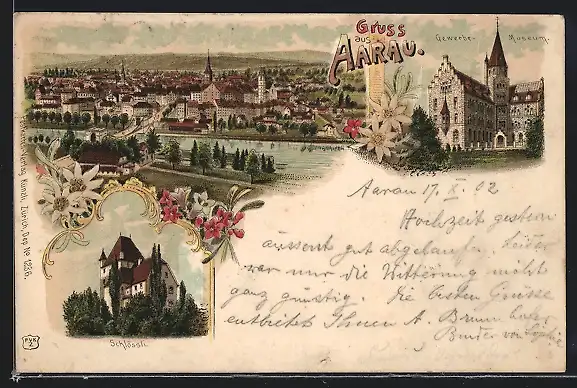 Gruss
aus
AARAU.
Gewerbe-Museum.
Schlössli.
Kunstanst.-Verlag Künzli, Zürich, Dep. No 1236.
Aarau 17. X. 02
Hochzeit gestern
äusserst gut abgelaufen. Leider
war nur die Witterung nicht
ganz günstig. Die besten Grüsse
entbietet Ihnen A. Brun
Bruder von Sophie